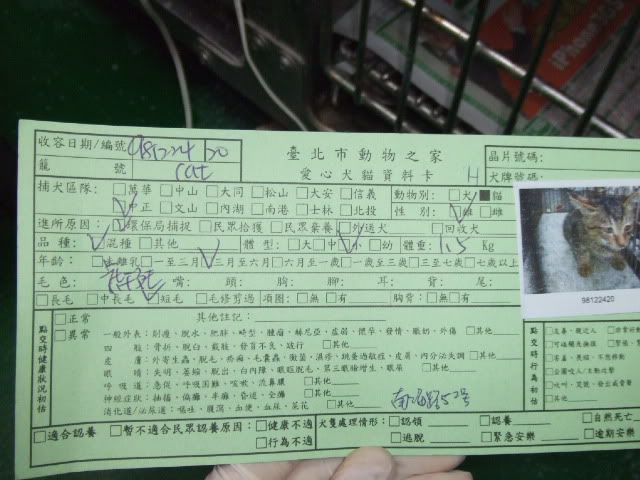 iPhone 3GS
收容日期/編號 981224 20
臺北市動物之家
晶片號碼:
籠 號 cat
愛心犬貓資料卡
H
犬牌號碼:
捕犬區隊: □萬華 □中山 □大同 □松山 □大安 □信義
動物別: □犬 ■貓
□中正 □文山 □內湖 □南港 □士林 □北投
性 別: □雄 □雌
進所原因: □環保局捕捉 □民眾拾獲 □民眾棄養 □外送犬 □回收犬
品 種: □混種 □其他
體 型: □大 □中 □小 □幼 體重: 1.5 Kg
年齡: □未離乳 □一至三月 □三月至六月 □六月至一歲 □一歲至三歲 □三至七歲 □七歲以上
毛 色: 嘴: 頭: 胸: 腳: 耳: 背: 尾:
□長毛 □中長毛 □短毛 □毛修剪過 項圈: □無 □有 胸背: □無 □有
98122420
點交時健康狀況初估
□正常
其他註記:
□異常
一般外表: 削瘦、脫水、肥胖、畸型、腫瘤、赫尼亞、虛弱、懷孕、發情、脹奶、外傷 □其他
四 肢: 骨折、脫臼、截肢、發育不良、跛行 □其他
皮 膚: 外寄生蟲、脫毛、疥癬、毛囊蟲、黴菌、濕疹、跳蚤過敏症、皮屑、內分泌失調 □其他
眼 睛: 失明、萎縮、脫出、白內障、眼眶脫毛、第三眼瞼增生、眼屎 □其他
呼吸道: 急促、呼吸困難、咳嗽、流鼻膿 □其他
神經症狀: 抽搐、偏頭、半癱、昏迷、全癱 □其他
消化道/泌尿道: 嘔吐、腹瀉、血便、血尿、尿花 □其他
南海路52號
點交時行為初估
□友善、親近人
□害羞、畏縮、不想移動
□企圖咬人/主動攻擊
□吠叫、哭號、發出威脅聲
□其他
□適合認養 □暫不適合民眾認養原因: □健康不適 □行為不適
犬隻處理情形: □認領 □認養 □自然死亡
□逃脫 □緊急安樂 □逾期安樂